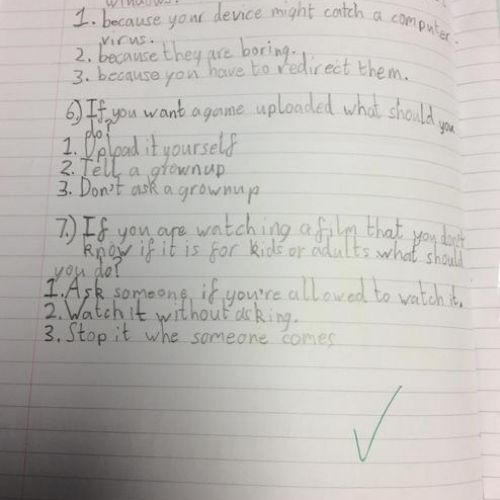 windows.
1. because your device might catch a computer
virus.
2. because they are boring.
3. because you have to redirect them.
6.) If you want a game uploaded what should you
do?
1. Upload it yourself
2. Tell a grownup
3. Don't ask a grownup
7.) If you are watching a film that you don't
know if it is for kids or adults what should
you do?
1. Ask someone if you're allowed to watch it.
2. Watch it without asking.
3. Stop it whe someone comes